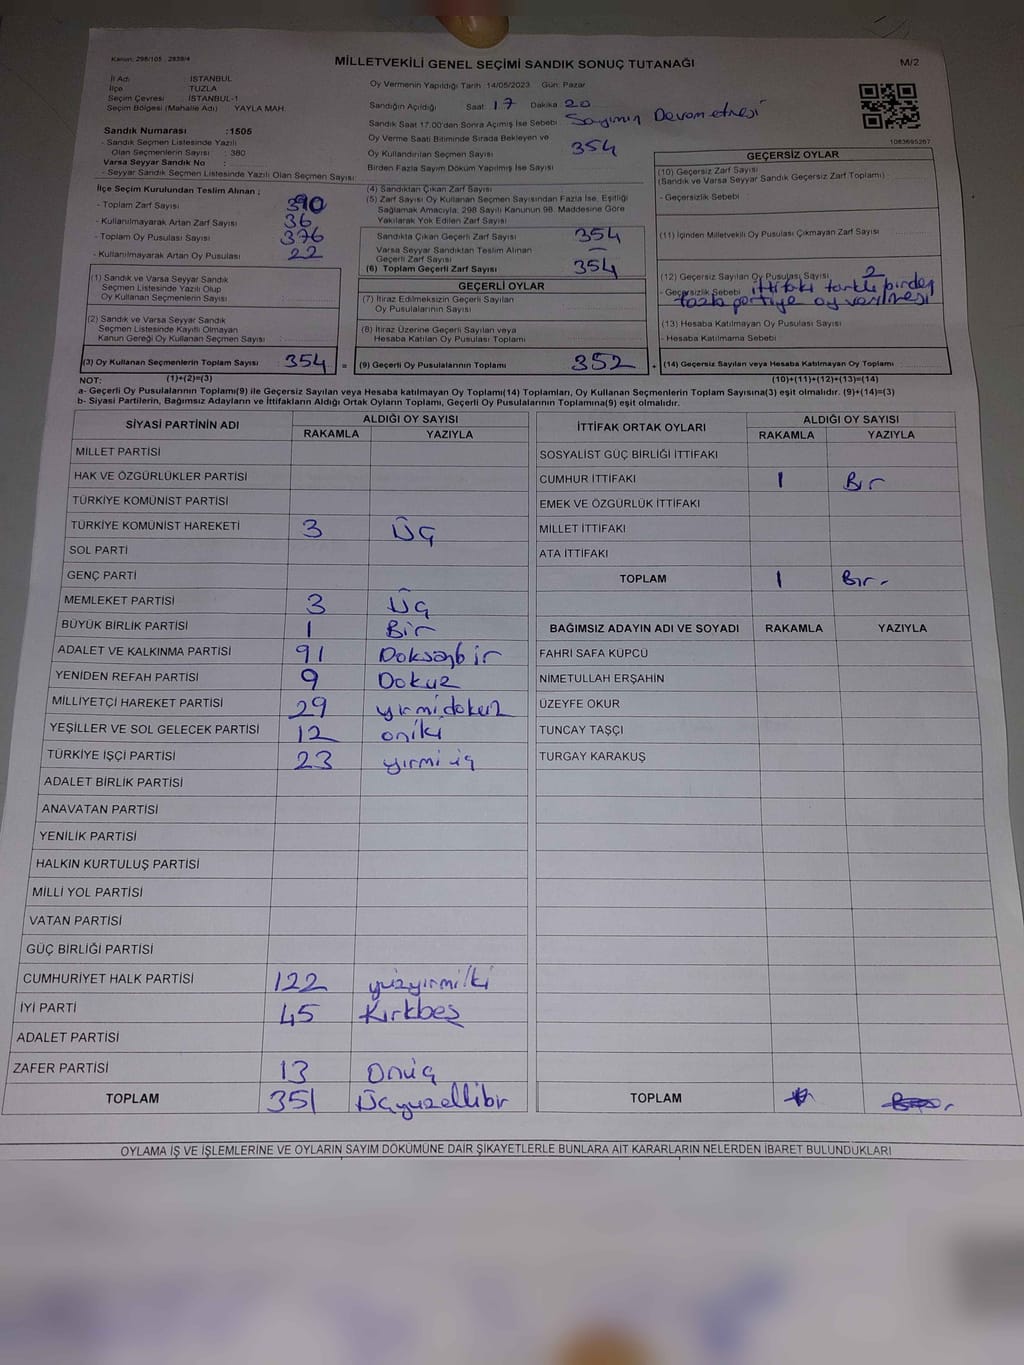 Kanun: 298/105 . 2839/4
MİLLETVEKİLİ GENEL SEÇİMİ SANDIK SONUÇ TUTANAĞI
M/2
İl Adı : İSTANBUL
İlçe : TUZLA
Seçim Çevresi : İSTANBUL-1
Seçim Bölgesi (Mahalle Adı) : YAYLA MAH.
Sandık Numarası :1505
- Sandık Seçmen Listesinde Yazılı
Olan Seçmenlerin Sayısı : 380
Varsa Seyyar Sandık No :
- Seyyar Sandık Seçmen Listesinde Yazılı Olan Seçmen Sayısı:
İlçe Seçim Kurulundan Teslim Alınan ;
- Toplam Zarf Sayısı 390
- Kullanılmayarak Artan Zarf Sayısı 36
- Toplam Oy Pusulası Sayısı 376
- Kullanılmayarak Artan Oy Pusulası 22
(1) Sandık ve Varsa Seyyar Sandık
Seçmen Listesinde Yazılı Olup
Oy Kullanan Seçmenlerin Sayısı :
(2) Sandık ve Varsa Seyyar Sandık
Seçmen Listesinde Kayıtlı Olmayan
Kanun Gereği Oy Kullanan Seçmen Sayısı :
(3) Oy Kullanan Seçmenlerin Toplam Sayısı 354 =
Oy Vermenin Yapıldığı Tarih :14/05/2023 Gün: Pazar
Sandığın Açıldığı Saat: 17 Dakika 20
Sandık Saat 17:00'den Sonra Açılmış İse Sebebi Sayımın Devam etmesi
Oy Verme Saati Bitiminde Sırada Bekleyen ve
Oy Kullandırılan Seçmen Sayısı 354
Birden Fazla Sayım Döküm Yapılmış İse Sayısı
(4) Sandıktan Çıkan Zarf Sayısı
(5) Zarf Sayısı Oy Kullanan Seçmen Sayısından Fazla İse, Eşitliği
Sağlamak Amacıyla; 298 Sayılı Kanunun 98. Maddesine Göre
Yakılarak Yok Edilen Zarf Sayısı
Sandıkta Çıkan Geçerli Zarf Sayısı 354
Varsa Seyyar Sandıktan Teslim Alınan
Geçerli Zarf Sayısı –
(6) Toplam Geçerli Zarf Sayısı 354
GEÇERLİ OYLAR
(7) İtiraz Edilmeksizin Geçerli Sayılan
Oy Pusulalarının Sayısı
(8) İtiraz Üzerine Geçerli Sayılan veya
Hesaba Katılan Oy Pusulası Toplamı
(9) Geçerli Oy Pusulalarının Toplamı 352
1083695267
GEÇERSİZ OYLAR
(10) Geçersiz Zarf Sayısı
(Sandık ve Varsa Seyyar Sandık Geçersiz Zarf Toplamı)
- Geçersizlik Sebebi
(11) İçinden Milletvekili Oy Pusulası Çıkmayan Zarf Sayısı
(12) Geçersiz Sayılan Oy Pusulası Sayısı 2
- Geçersizlik Sebebi ittifakı farklı birden
fazla partiye oy verilmesi
(13) Hesaba Katılmayan Oy Pusulası Sayısı
- Hesaba Katılmama Sebebi
(14) Geçersiz Sayılan veya Hesaba Katılmayan Oy Toplamı
NOT: (1)+(2)=(3) (10)+(11)+(12)+(13)=(14)
a- Geçerli Oy Pusulalarının Toplamı(9) ile Geçersiz Sayılan veya Hesaba Katılmayan Oy Toplamı(14) Toplamları, Oy Kullanan Seçmenlerin Toplam Sayısına(3) eşit olmalıdır. (9)+(14)=(3)
b- Siyasi Partilerin, Bağımsız Adayların ve İttifakların Aldığı Ortak Oyların Toplamı, Geçerli Oy Pusulalarının Toplamına(9) eşit olmalıdır.
SİYASİ PARTİNİN ADI ALDIĞI OY SAYISI
RAKAMLA YAZIYLA
MİLLET PARTİSİ
HAK VE ÖZGÜRLÜKLER PARTİSİ
TÜRKİYE KOMÜNİST PARTİSİ
TÜRKİYE KOMÜNİST HAREKETİ 3 Üç
SOL PARTİ
GENÇ PARTİ
MEMLEKET PARTİSİ 3 Üç
BÜYÜK BİRLİK PARTİSİ 1 Bir
ADALET VE KALKINMA PARTİSİ 91 Doksanbir
YENİDEN REFAH PARTİSİ 9 Dokuz
MİLLİYETÇİ HAREKET PARTİSİ 29 yirmidokuz
YEŞİLLER VE SOL GELECEK PARTİSİ 12 oniki
TÜRKİYE İŞÇİ PARTİSİ 23 yirmi üç
ADALET BİRLİK PARTİSİ
ANAVATAN PARTİSİ
YENİLİK PARTİSİ
HALKIN KURTULUŞ PARTİSİ
MİLLİ YOL PARTİSİ
VATAN PARTİSİ
GÜÇ BİRLİĞİ PARTİSİ
CUMHURİYET HALK PARTİSİ 122 yüzyirmiiki
İYİ PARTİ 45 Kırkbeş
ADALET PARTİSİ
ZAFER PARTİSİ 13 Onüç
TOPLAM 351 Üçyüzellibir
İTTİFAK ORTAK OYLARI ALDIĞI OY SAYISI
RAKAMLA YAZIYLA
SOSYALİST GÜÇ BİRLİĞİ İTTİFAKI
CUMHUR İTTİFAKI 1 Bir
EMEK VE ÖZGÜRLÜK İTTİFAKI
MİLLET İTTİFAKI
ATA İTTİFAKI
TOPLAM 1 Bir
BAĞIMSIZ ADAYIN ADI VE SOYADI RAKAMLA YAZIYLA
FAHRİ SAFA KÜPCÜ
NİMETULLAH ERŞAHİN
ÜZEYFE OKUR
TUNCAY TAŞÇI
TURGAY KARAKUŞ
TOPLAM
OYLAMA İŞ VE İŞLEMLERİNE VE OYLARIN SAYIM DÖKÜMÜNE DAİR ŞİKAYETLERLE BUNLARA AİT KARARLARIN NELERDEN İBARET BULUNDUKLARI